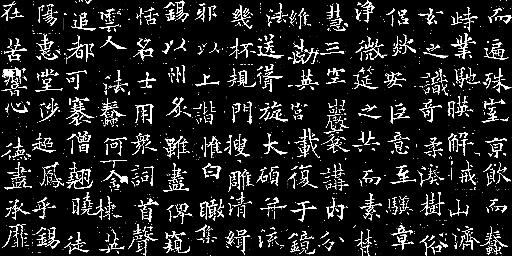 而遍殊室京飲而蠢
時業馳暎解戒山濟
玄之識奇柔湊樹俗
侶欻安巨意至驥章
淨微筵之共而素梵
慧三空巖裘講内分
維共宮載復于鏡
法送聲旋大碩并流
幾杯規門搜雕清緝
邪以上諧惟白瞰集
錫以州雖盡俾窺
恬名士用衆詞首聲
雲人法蠢何舍棲英
追都可褰僧翹曉徒
陽惠堂沙超鳳乎錫
在苦心德盡承靡